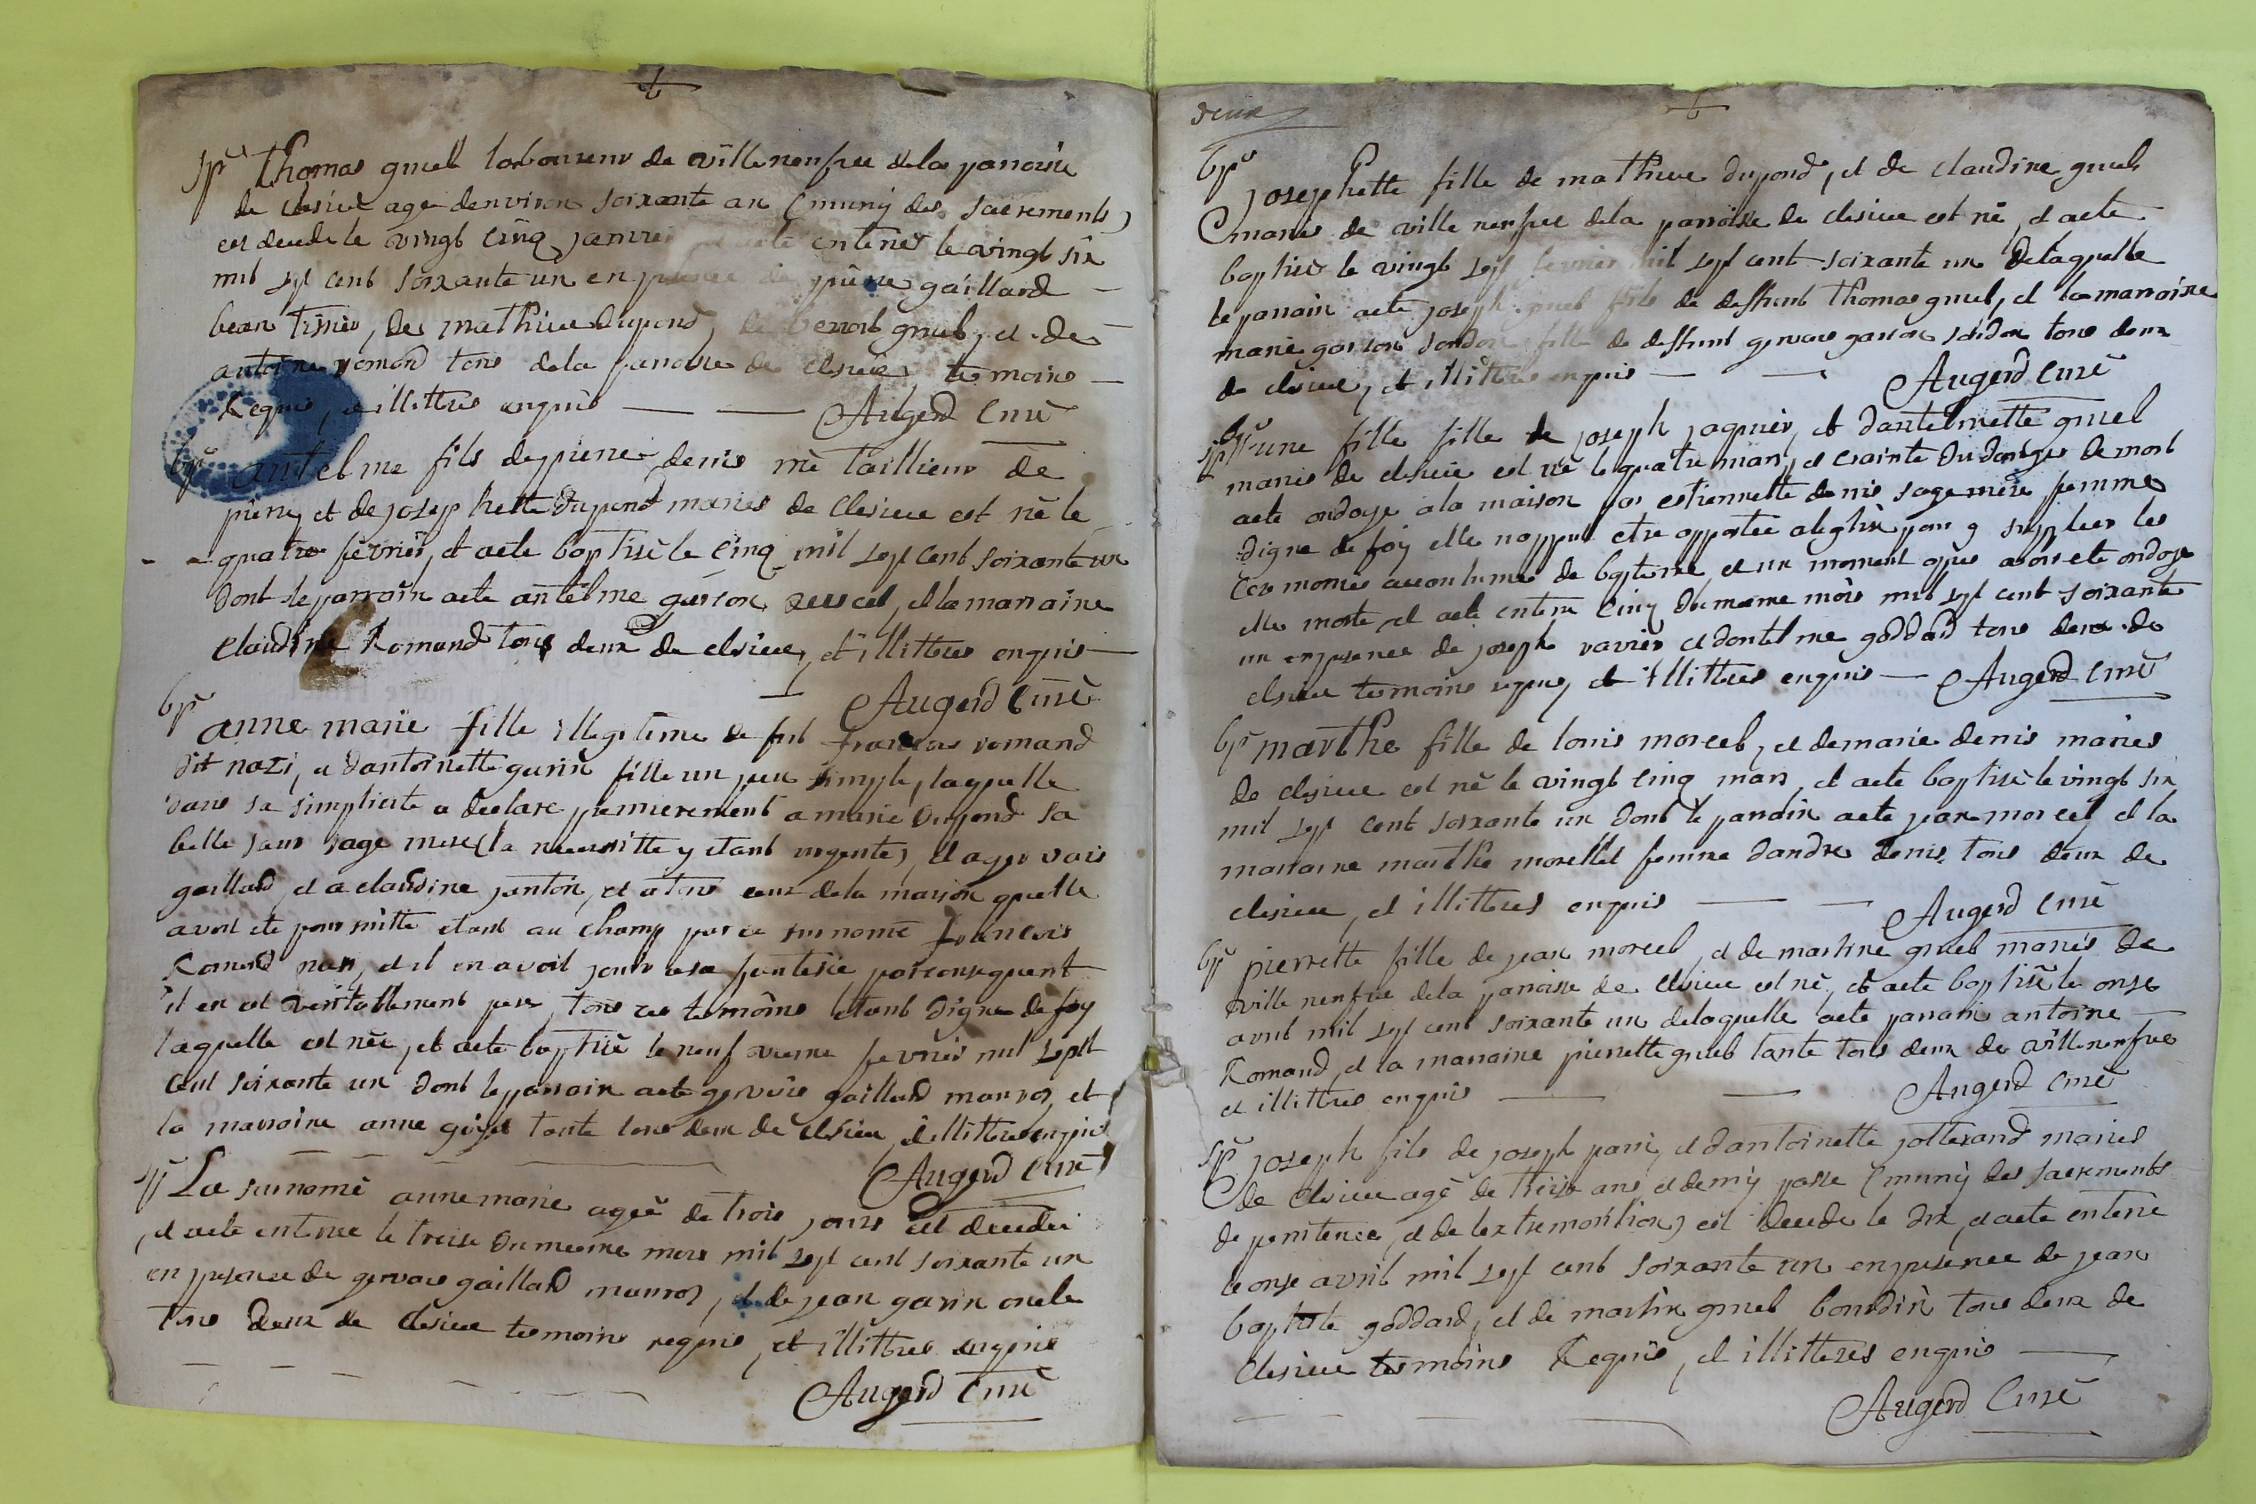 +
Sp.re Thomas gruel laboureur de villeneufve de la parroisse
de clesieu age denviron soixante an (muny des sacrements)
est decede le vingt cinq janvier et acte enterré le vingt six
mil sept cent soixante un en presence de pierre gaillard
tissier, de mathieu dupond, de benoit gruel, et de
antoine romand tous de la parroisse de clesieu temoins
Requis, et illittres enquis Augerd Curé
bp.e antelme fils de pierre denis mè taillieur de
pierre, et de josephette dupond mariés de Clesieu est né le
quatre fevrier, et acte baptisé le cinq mil sept cent soixante un
dont le parrain acte antelme garson, et la marraine
Claudine Romand tous deux de clesieu, et illittres enquis
Augerd Curé
bp.e anne marie fille illegitime de feu francois romand
dit nazi, et dantoinette gurin fille un peu simple, laquelle
dans sa simplicite a declare premierement a marie dupond sa
belle saur sage mere (la necessitte y etant urgente) et a gervais
gaillard, et a claudine janton, et a tous ceux de la maison quelle
avoit ete poursuitte etant au champ par ce surnomé francois
Romand nazi, et il en avoit jouir a sa fantesie, par consequent
il en est veritablement pere, tous ces temoins etant digne de foy
laquelle est née, et acte baptisé le neuf vieme fevrier mil sept
cent soixante un dont le parrain acte gervais gaillard mauros, et
la marraine anne tante tous deux de clesieu, et illittres enquis
Augerd Curé
sp.e La surnomé anne marie agée de trois jours est decedée
, et acte enterree le treise du meme mois mil sept cent soixante un
en presence de gervais gaillard mauros, et de jean garin oncle
tous deux de clesieu temoins requis, et illittres enquis
Augerd Curé
deux
+
bp.e josephette fille de mathieu dupond, et de claudine gruel
mariés de ville neufve de la parroisse de clesieu est né, et acte
baptisée le vingt sept fevrier mil sept cent soixante un de laquelle
le parrain acte joseph gruel fils de deffunt thomas gruel, et la marraine
marie garson fille de deffunt gervais garson tous deux
de clesieu, et illittres enquis Augerd Curé
bp.e sp.e une fille fille de joseph jaquier, et dantelmette gruel
mariés de clesieu est né le quatre mars, et crainte du danger de mort
acte ondoye a la maison par estiennette denis sage mere femme
digne de foy elle na pu etre apportée a leglise pour y supleer les
ceremonies accoutumes de bapteme, et un moment apres avoir ete ondoye
elle morte, et acte enterré cinq du meme mois mil sept cent soixante
un en presence de joseph varvier et dantelme goddard tous deux de
clesieu temoins requis, et illittres enquis Augerd Curé
bp.e marthe fille de louis morcel, et de marie denis mariés
de clesieu est né le vingt cinq mars, et acte baptisé le vingt six
mil sept cent soixante un dont le parrain acte jean morcel et la
marraine marthe morellet femme dandre denis tous deux de
clesieu, et illittres enquis Augerd Curé
bp.e pierrette fille de jean morcel, et de martine gruel mariés de
ville neufve de la parroisse de clesieu est né, et acte baptisé le onse
avril mil sept cent soixante un de laquelle acte parrain antoine
Romand, et la marraine pierrette gruel tante tous deux de villeneufve
et illittres enquis Augerd Curé
sp.e joseph fils de joseph parri, et dantoinette jotterand mariés
de clesieu agé de treise ans et demy passe (muny des sacrements
de penitence, et de lextremontion) est decede le dix, et acte enterré
le onse avril mil sept cent soixante un en presence de jean
baptiste goddard, et de martin gruel bourdin tous deux de
clesieu temoins Requis, et illitteres enquis
Augerd Curé